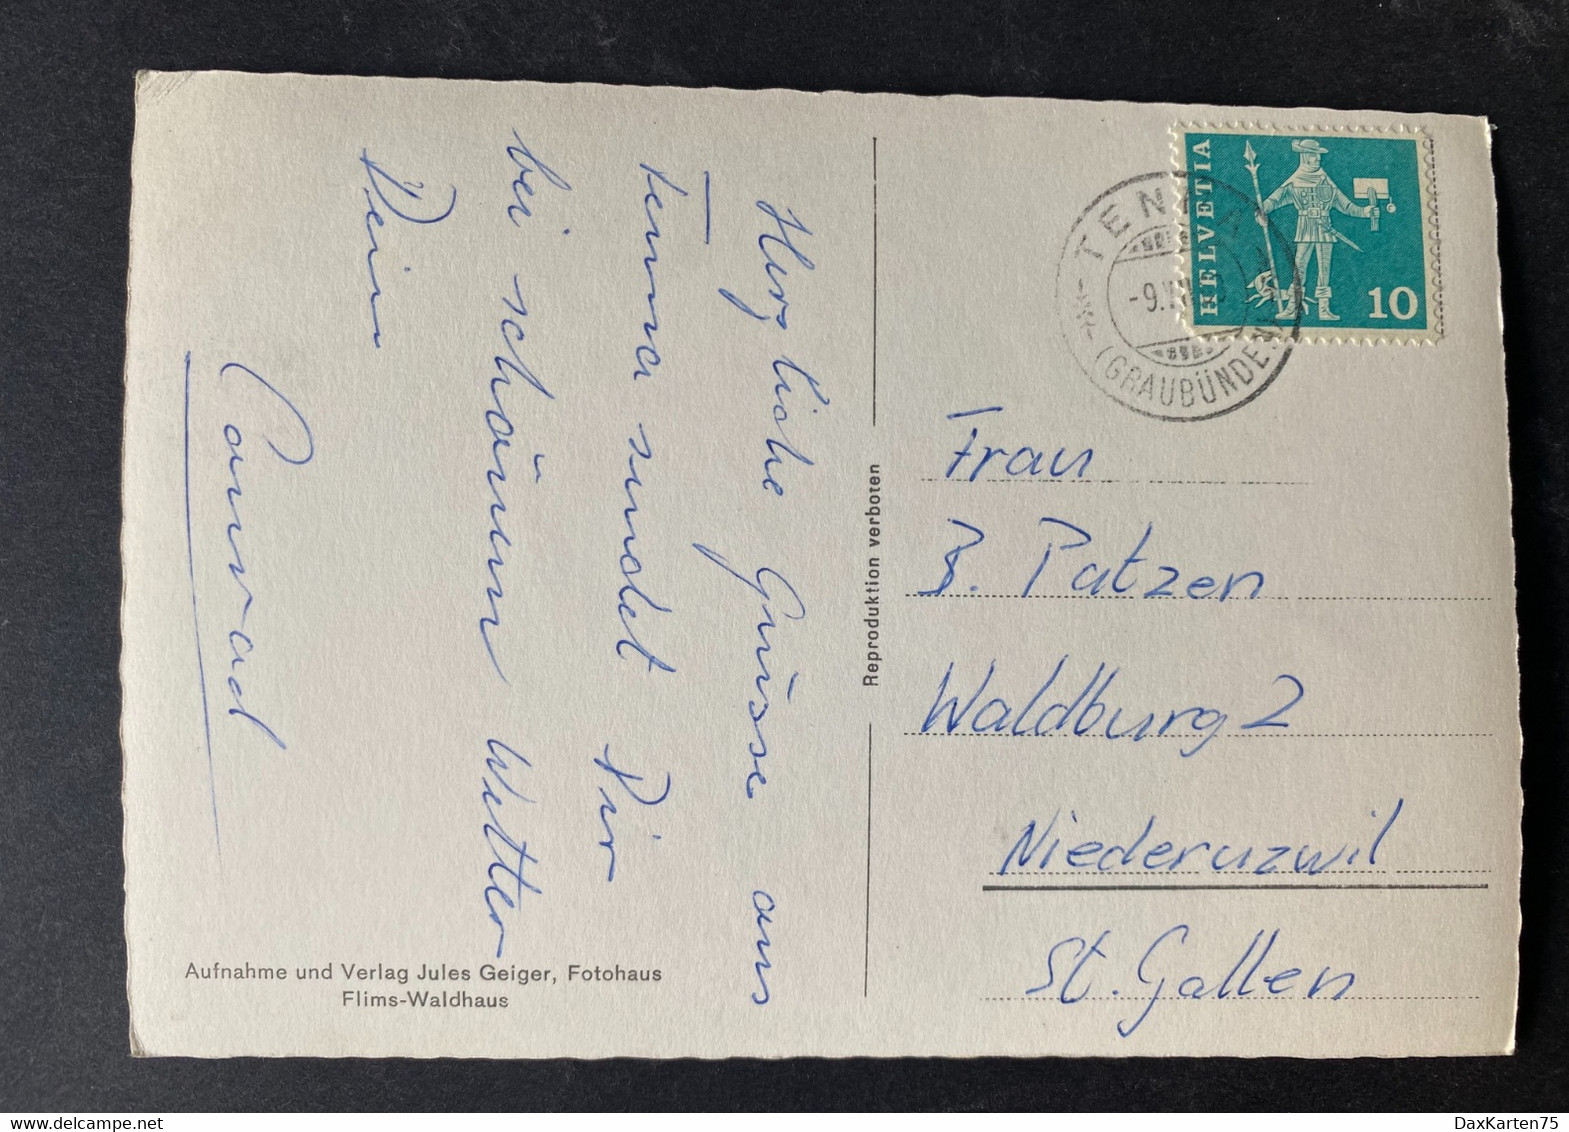 Herzliche Grüsse aus
Tenna sendet Dir
bei schönem Wetter
Dein
Conrad
Aufnahme und Verlag Jules Geiger, Fotohaus
Flims-Waldhaus
Reproduktion verboten
HELVETIA
10
TENNA
-9.
(GRAUBÜNDEN)
Frau
B. Patzen
Waldburg 2
Niederuzwil
St. Gallen
DaxKarten75